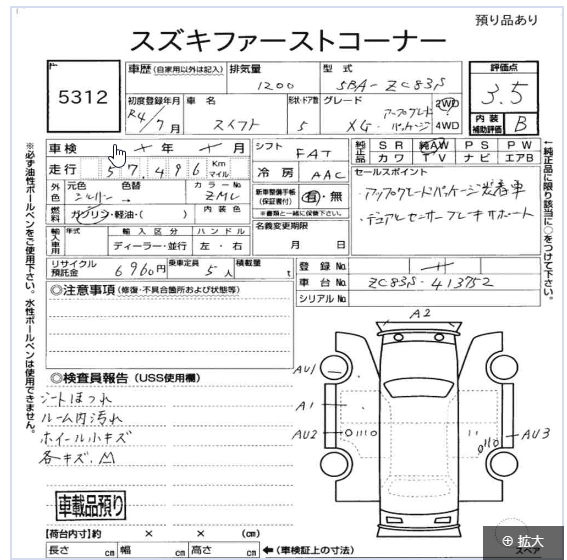 預り品あり
スズキファーストコーナー
5312
車歴 (自家用以外は記入)
排気量 1200
型式 5BA-ZC83S
評価点 3.5
初度登録年月 R4/7月
車名 スイフト
形状・ドア数 5
グレード XG アップグレードパッケージ
2WD
4WD
内装補助評価 B
車検 年 月
シフト FAT
純正品 SR 純AW PS PW
カワ TV ナビ エアB
走行 57,496 Km マイル
冷房 AAC
外色 元色 シルバー 色替 →
カラーNo. ZML
新車整備手帳(保証書付) 有・無
※書類と一緒に保管下さい。
セールスポイント
・アップグレードパッケージ装着車
・デュアルセンサーブレーキサポート
燃料 ガソリン・軽油・( )
内装色
名義変更期限
月 日
輸入車用 年式 輸入区分 ハンドル
ディーラー・並行 左・右
リサイクル預託金 6960円
乗車定員 5人
積載量 t
登録No.
車台No. ZC83S-413752
シリアルNo.
◎注意事項 (修復・不具合箇所および状態等)
A2
AU1
A1
AU2
AU3
◎検査員報告 (USS使用欄)
シートほつれ
ルーム内汚れ
ホイール小キズ
各キズ.凹
車載品預り
[荷台内寸]約 × × (cm)
長さ cm 幅 cm 高さ cm ←(車検証上の寸法)
スペア
拡大
※必ず油性ボールペンをご使用下さい。水性ボールペンは使用できません。
←純正品に限り該当に○をつけて下さい。